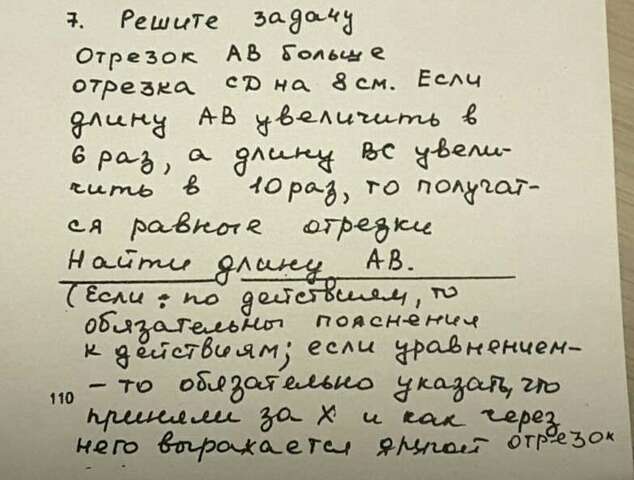 7. Решите задачу
Отрезок АВ больше
отрезка CD на 8 см. Если
длину АВ увеличить в
6 раз, а длину ВС увели-
чить в 10 раз, то получат-
ся равные отрезки
Найти длину АВ.
(Если : по действиям, то
обязательны пояснения
к действиям; если уравнением-
- то обязательно указать, что
110
приняли за X и как через
него выражается другой отрезок